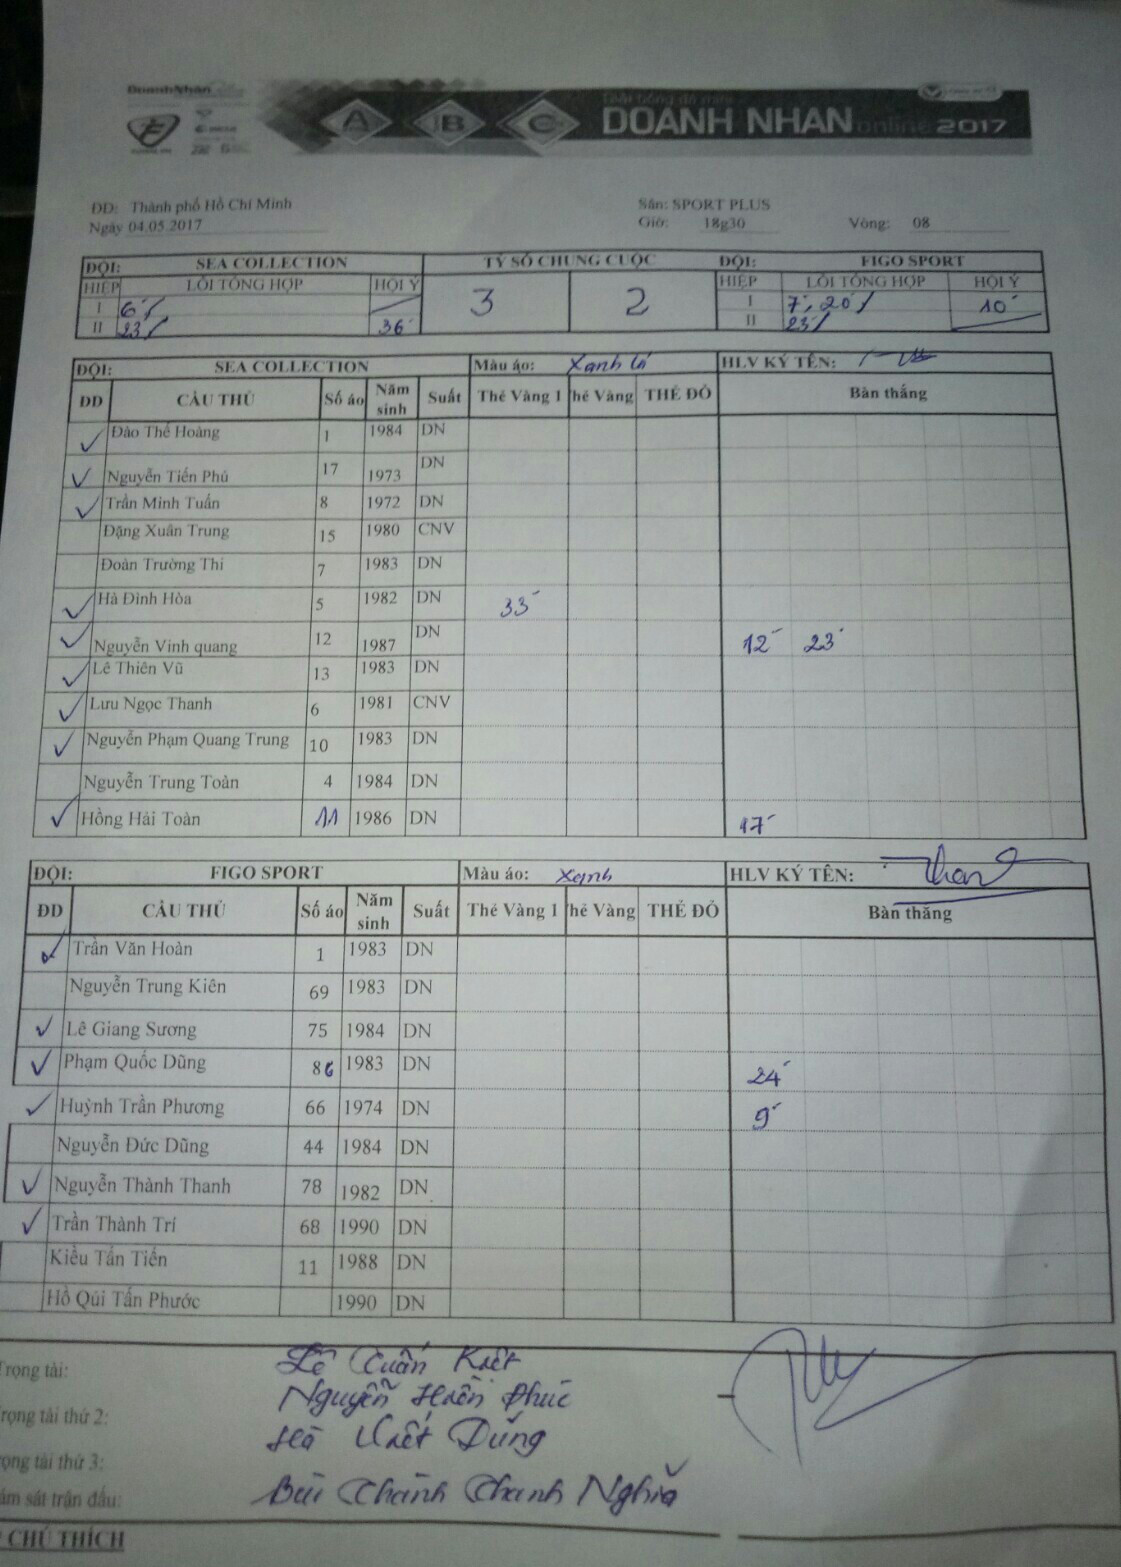 DoanhNhân
A B C
Giải bóng đá mini
DOANH NHAN online 2017
ĐD: Thành phố Hồ Chí Minh
Sân: SPORT PLUS
Ngày 04.05.2017
Giờ: 18g30
Vòng: 08
ĐỘI: SEA COLLECTION TỶ SỐ CHUNG CUỘC ĐỘI: FIGO SPORT
HIỆP LỖI TỔNG HỢP HỘI Ý 3 2 HIỆP LỖI TỔNG HỢP HỘI Ý
I 6' I 7', 20' 10'
II 23' 36' II 23'
ĐỘI: SEA COLLECTION Màu áo: Xanh lá HLV KÝ TÊN:
DD CẦU THỦ Số áo Năm sinh Suất Thẻ Vàng 1 hẻ Vàng THẺ ĐỎ Bàn thắng
Đào Thế Hoàng 1 1984 DN
Nguyễn Tiến Phú 17 1973 DN
Trần Minh Tuấn 8 1972 DN
Đặng Xuân Trung 15 1980 CNV
Đoàn Trường Thi 7 1983 DN
Hà Đình Hòa 5 1982 DN 33'
Nguyễn Vinh quang 12 1987 DN 12' 23'
Lê Thiên Vũ 13 1983 DN
Lưu Ngọc Thanh 6 1981 CNV
Nguyễn Phạm Quang Trung 10 1983 DN
Nguyễn Trung Toàn 4 1984 DN
Hồng Hải Toàn 11 1986 DN 17'
ĐỘI: FIGO SPORT Màu áo: Xanh HLV KÝ TÊN:
ĐD CẦU THỦ Số áo Năm sinh Suất Thẻ Vàng 1 hẻ Vàng THẺ ĐỎ Bàn thắng
Trần Văn Hoàn 1 1983 DN
Nguyễn Trung Kiên 69 1983 DN
Lê Giang Sương 75 1984 DN
Phạm Quốc Dũng 86 1983 DN 24'
Huỳnh Trần Phương 66 1974 DN 9'
Nguyễn Đức Dũng 44 1984 DN
Nguyễn Thành Thanh 78 1982 DN
Trần Thành Trí 68 1990 DN
Kiều Tấn Tiến 11 1988 DN
Hồ Qúi Tấn Phước 1990 DN
Trọng tài: Lê Tuấn Kiệt
Trọng tài thứ 2: Nguyễn Hiền Phúc
ọng tài thứ 3: Hà Việt Dũng
ám sát trận đấu: Bùi Thành Thanh Nghĩa
CHÚ THÍCH